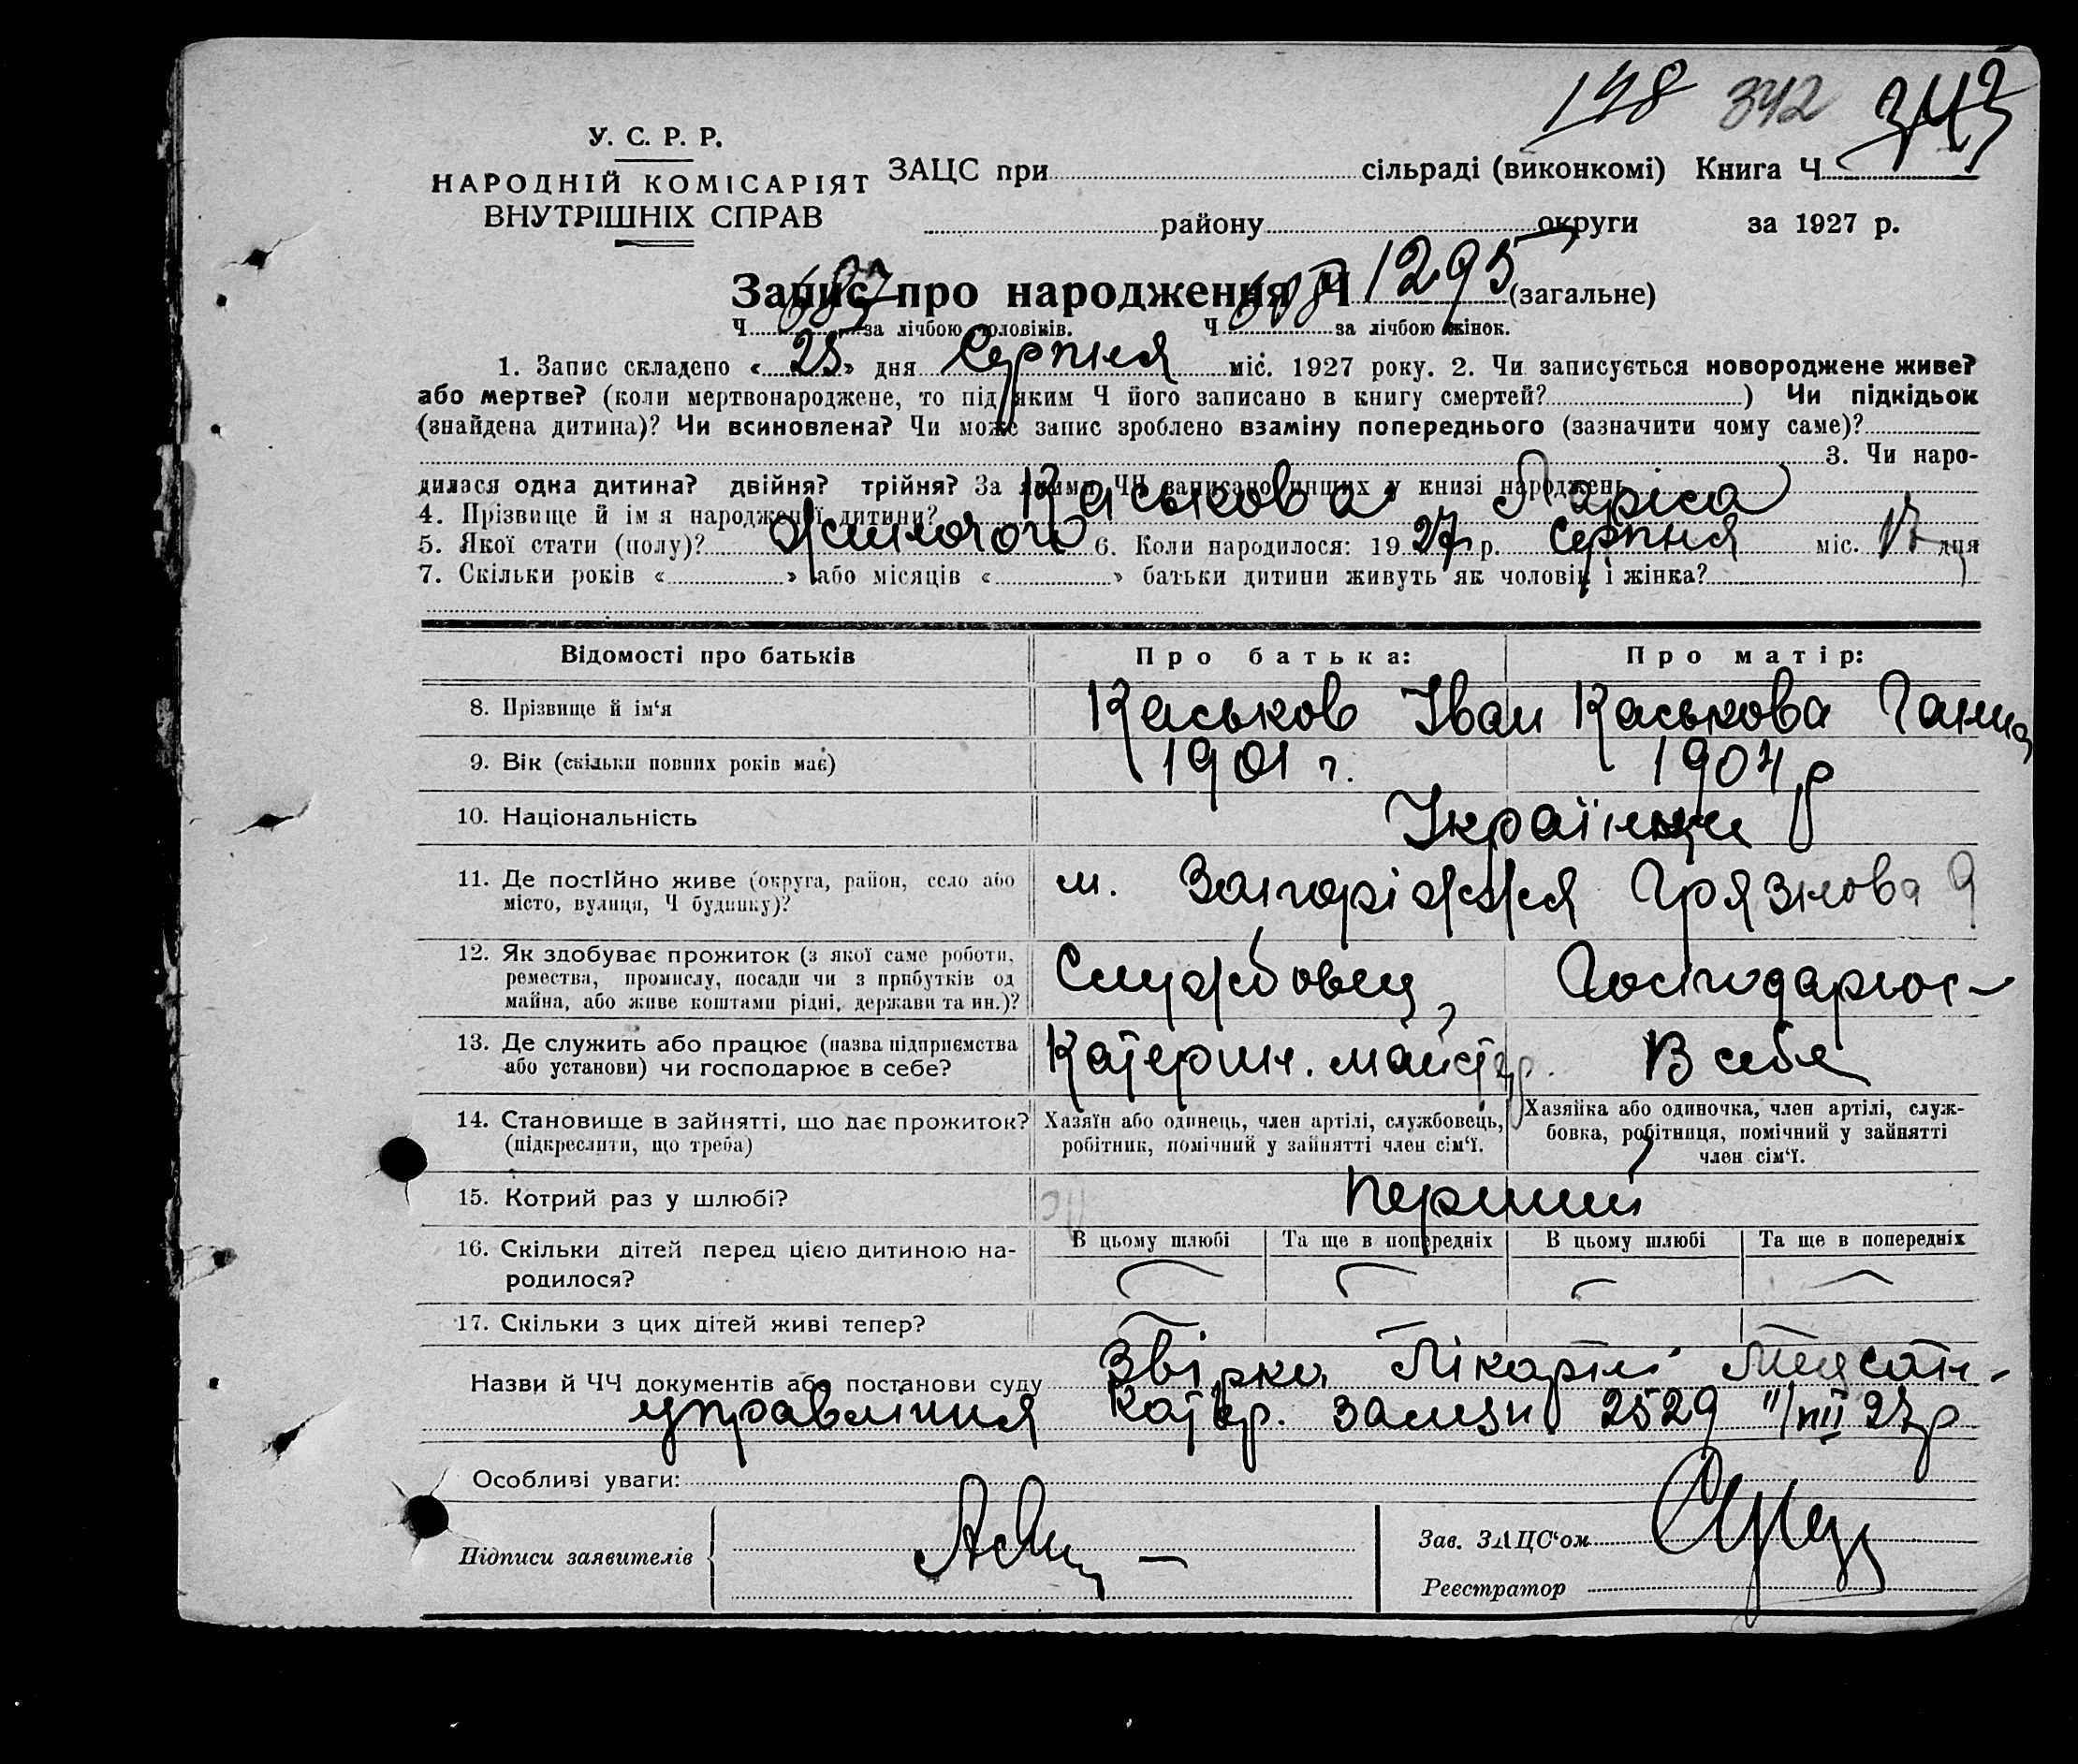 148 342 343
У. С. Р. Р.
НАРОДНІЙ КОМІСАРІЯТ
ВНУТРІШНІХ СПРАВ
ЗАЦС при сільраді (виконкомі) Книга Ч
району округи за 1927 р.
Запис про народження Ч 1295 (загальне)
Ч. 687 за лічбою чоловіків. Ч. 608 за лічбою жінок.
1. Запис складено « 25 » дня Серпня міс. 1927 року. 2. Чи записується новороджене живе?
або мертве? (коли мертвонароджене, то під яким Ч його записано в книгу смертей? ) Чи підкідьок
(знайдена дитина)? Чи всиновлена? Чи може запис зроблено взаміну попереднього (зазначити чому саме)?
3. Чи наро-
дилася одна дитина? двійня? трійня? За якими ЧЧ записано инших у книзі народжень
4. Прізвище й ім я народженої дитини? Каськова Лариса
5. Якої стати (полу)? жиночого 6. Коли народилося: 1927 р. Серпня міс. 17 дця
7. Скільки років « » або місяців « » батьки дитини живуть як чоловік і жінка?
Відомості про батьків Про батька: Про матір:
8. Прізвище й ім‘я Каськов Іван Каськова Ганна
9. Вік (скільки повних років має) 1901 г. 1904 р
10. Національність Українци
11. Де постІйно живе (округа, район, село або м. Запоріжжя Грязнова 9
місто, вулиця, Ч будинку)?
12. Як здобуває прожиток (з якої саме роботи, Службовец Господарює
ремества, промислу, посади чи з прибутків од
майна, або живе коштами рідні, держави та ин.)?
13. Де служить або працює (назва підприємства Катерин. майстер. В себе
або установи) чи господарює в себе?
14. Становище в зайнятті, що дає прожиток? Хазяїн або одинець, член артілі, службовець, Хазяйка або одиночка, член артілі, служ-
(підкреслити, що треба) робітник, помічний у зайнятті член сім‘ї. бовка, робітниця, помічний у зайнятті
член сім‘ї.
15. Котрий раз у шлюбі? перший
16. Скільки дітей перед цією дитиною на- В цьому шлюбі Та ще в попередніх В цьому шлюбі Та ще в попередніх
родилося?
17. Скільки з цих дітей живі тепер?
Назви й ЧЧ документів або постанови суду Звірка Лікарні Медсан-
управління Катер. зализн 2529 11/VIII 27р
Особливі уваги:
Підписи заявителів
Зав. ЗАЦС‘ом
Реєстратор